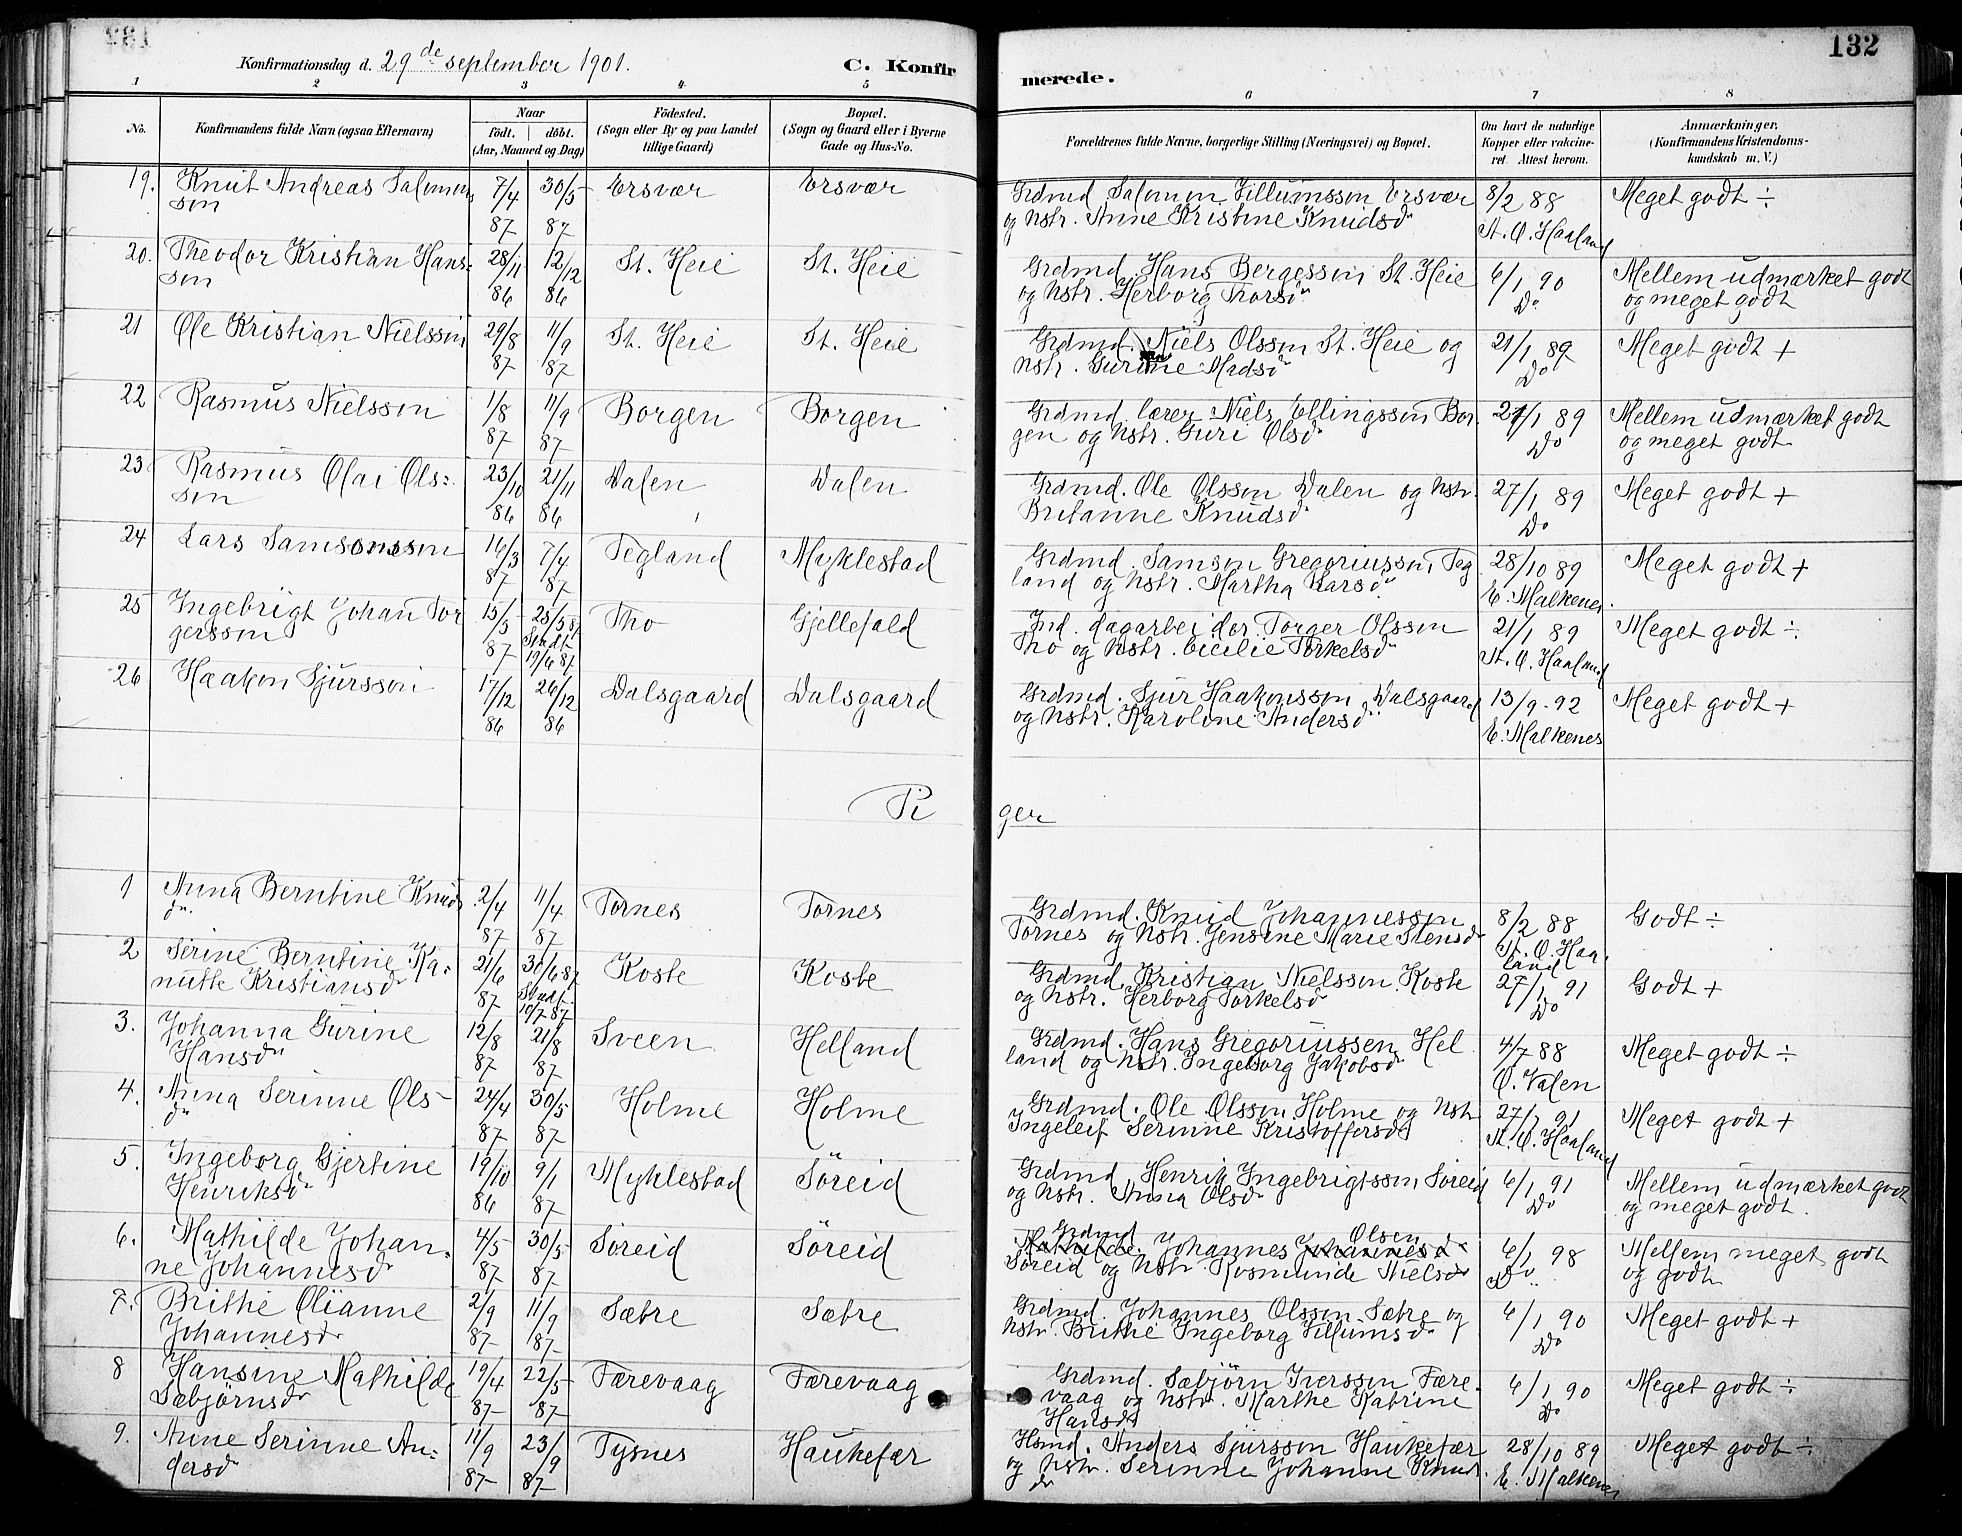 Konfirmationsdag d. 29de september 1901.
C. Konfirmerede.
132
1 2 3 4 5 6 7 8
No.
Konfirmandens fulde Navn (ogsaa Efternavn)
Naar
födt. döbt.
(Aar, Maaned og Dag)
Födested.
(Sogn eller By og paa Landet
tillige Gaard)
Bopæl.
(Sogn og Gaard eller i Byerne
Gade og Hus-No.
Forældrenes fulde Navne, borgerlige Stilling (Næringsvei) og Bopæl.
Om havt de naturlige
Kopper eller vakcine-
ret. Attest herom.
Anmærkninger.
(Konfirmandens Kristendoms-
kundskab m. V.)
19. Knut Andreas Salomons
son
7/4 87 30/5 87 Ersvær Ersvær
Grdmd Salomon Tillumsson Ersvær
og Kstr. Anne Kristine Knudsdr
8/2 88
St. O. Haaland
Meget godt ÷
20. Theodor Kristian Hans-
son
28/11 86 12/12 86 St. Heie St. Heie
Grdmd. Hans Bergesson St. Heie
og Kstr. Herborg Thorsdr
6/1 90
Do
Mellem udmærket godt
og meget godt
21 Ole Kristian Nielsson
29/8 87 11/9 87 St. Heie St. Heie
Grdmd. Niels Olsson St. Heie og
Kstr. Gurine Madsdr
21/1 89
Do
Meget godt +
22 Rasmus Nielsson
1/8 87 11/9 87 Borgen Borgen
Grdmd. lærer Niels Ellingsson Bor-
gen og Kstr. Guri Olsdr
21/1 89
Do
Mellem udmærket godt
og meget godt
23 Rasmus Olai Ols-
son
23/10 86 21/11 86 Dalen Dalen
Grdmd. Ole Olsson Dalen og Kstr.
Britanne Knudsdr
27/1 89
Do
Meget godt +
24 Lars Samsonsson
16/3 87 7/4 87 Tegland Myklestad
Grdmd. Samson Gregoriusson Teg
land og Kstr. Martha Larsdr
28/10 89
E. Malkenes
Meget godt +
25 Ingebrigt Johan Tor
gersson
15/5 87 28/5 87
Stadf.
19/6 87
Tho Gjellefald
Ind. dagarbeider Torger Olsson
Tho og Kstr. Cicilie Torkelsdr
21/1 89
St. O. Haaland
Meget godt ÷
26 Haakon Sjursson
17/12 86 26/12 86 Dalsgaard Dalsgaard
Grdmd. Sjur Haakonsson Dalsgaard
og Kstr. Karoline Andersdr
13/9 92
E. Malkenes
Meget godt +
Piger
1 Anna Berntine Knuds
dr.
2/4 87 11/4 87 Tornes Tornes
Grdmd. Knud Johannesson
Tornes og Kstr. Jensine Marie Stensdr
8/2 88
St. O. Haa-
land
Godt ÷
2 Serine Berntine Ka-
nutte Kristiansdr
21/6 87 30/6 87
Stadf.
10/7 87
Koste Koste
Grdmd. Kristian Nielsson Koste
og Kstr. Herborg Torkelsdr
27/1 91
Do
Godt +
3. Johanna Gurine
Hansdr
12/8 87 21/8 87 Sveen Helland
Grdmd. Hans Gregoriussen Hel
land og Kstr. Ingeborg Jakobsdr
4/7 88
O. Valen
Meget godt ÷
4. Anna Serinne Ols-
dr
24/4 87 30/5 87 Holme Holme
Grdmd. Ole Olsson Holme og Kstr
Ingeleif Serinne Kristoffersdr
27/1 91
St. O. Haaland
Meget godt +
5. Ingeborg Gjertine
Henriksdr
19/10 86 9/1 87 Myklestad Söreid
Grdmd. Henrik Ingebrigtsson Söreid
og Kstr. Anna Olsdr
6/1 91
Do
Mellem udmærket godt
og meget godt.
6. Mathilde Johan-
ne Johannesdr
4/5 87 30/5 87 Söreid Söreid
Grdmd Olsen
Mathilde Johannes Johannesdr
Söreid og Kstr Rosmunde Nielsdr
6/1 98
Do
Mellem meget godt
og godt
7. Brithe Olianne
Johannesdr
2/9 87 11/9 87 Sætre Sætre
Grdmd. Johannes Olsson Sætre og
Kstr. Brithe Ingeborg Tillumsdr
6/1 90
Do
Meget godt +
8 Hansine Mathilde
Sæbjörnsdr
19/4 87 22/5 87 Færevaag Færevaag
Grdmd. Sæbjörn Iversson Fære-
vaag og Kstr. Marthe Katrine
Hansdr
6/1 90
Do
Meget godt ÷
9. Anne Serinne An-
dersdr
11/9 87 23/9 87 Tysnes Haukefær
Hsmd. Anders Sjursson Haukefær
og Kstr. Serinne Johanne Knuds
dr
28/10 89
E. Malkenes
Meget godt ÷